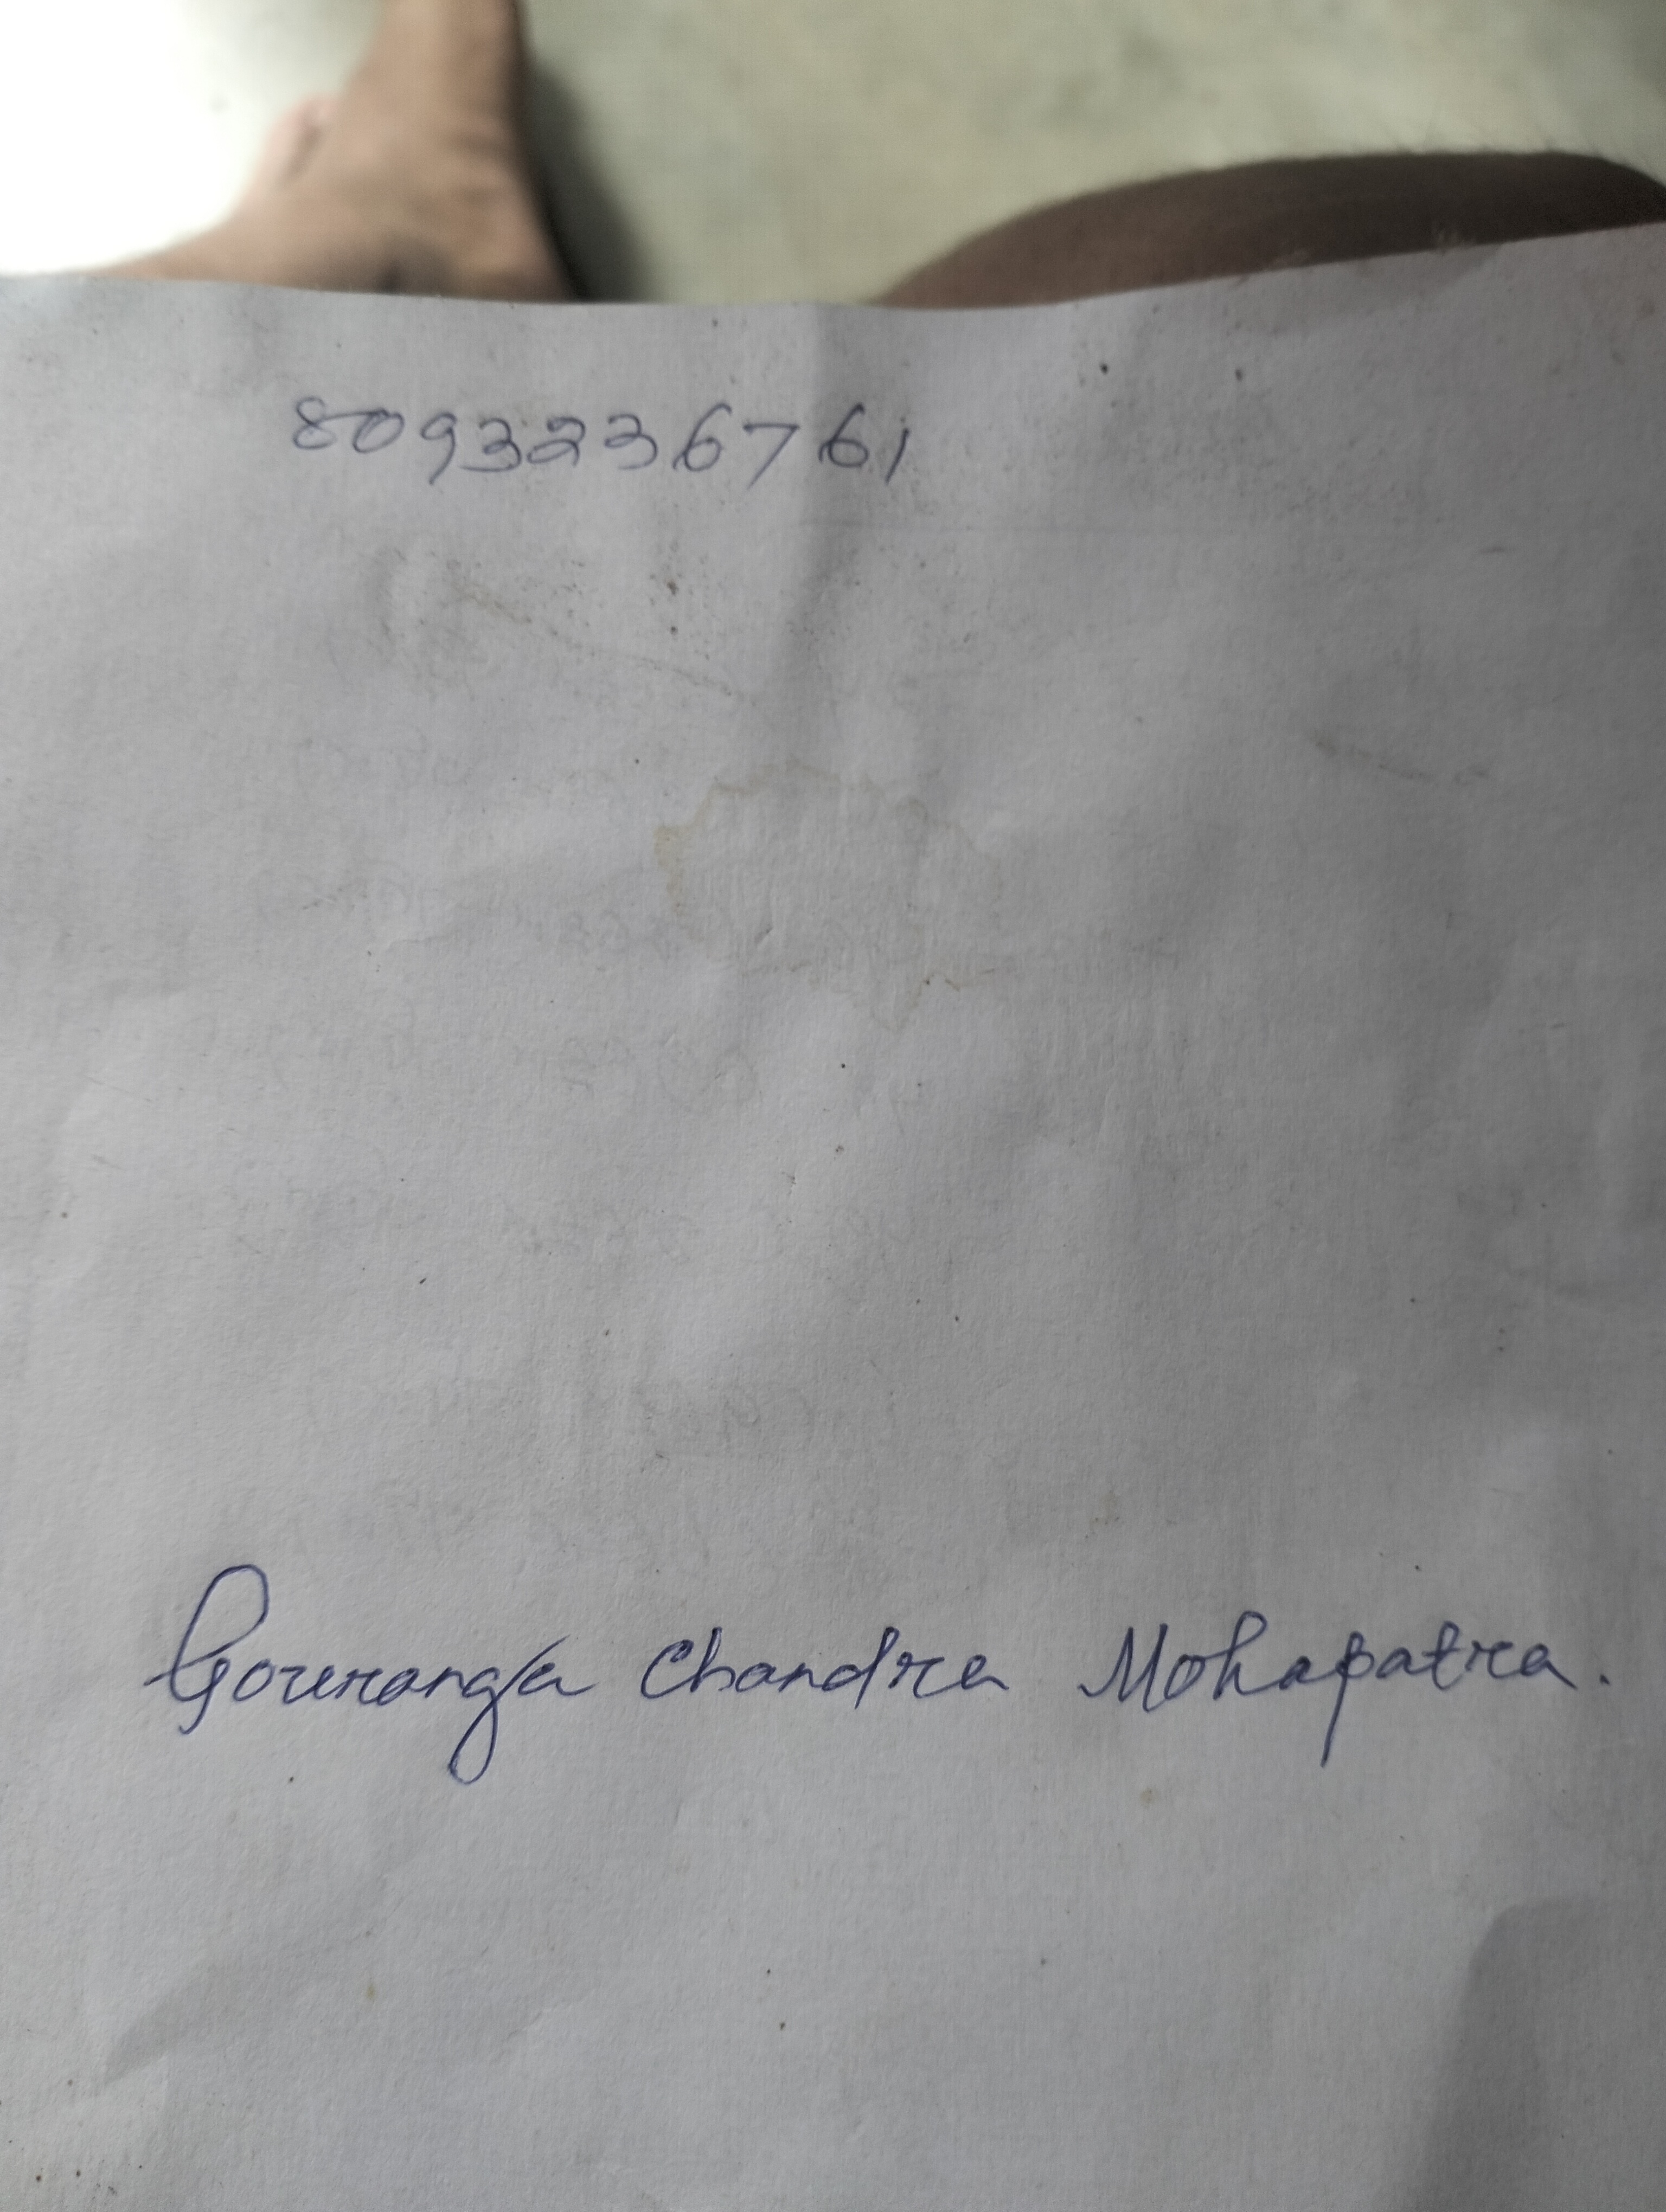 8093236761
Gouranga Chandra Mohapatra.